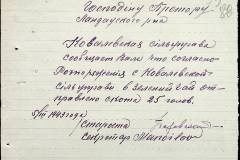 Господину Претору
Ландауского р-на
Ковалевская сільуправа
сообщает Вам что согласно
Розпоряжения с Ковалевской
сільуправы в Зелений Гай от
правлено скота 25 голов.
5/III 1943 года
Староста
Секретарь